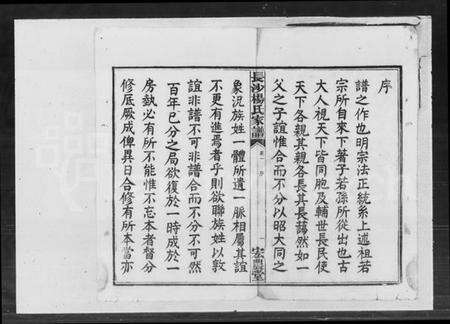 序
譜之作也明宗法正統系上述祖若
宗所自來下著子若孫所從出也古
大人視天下皆同胞及輔世長民使
天下各親其親各長其長藹然如一
父之子誼惟合而不分以昭大同之
長沙楊氏家譜
卷一 序
象況族姓一體所遺一脈相屬其誼
不更有進焉者乎則欲聯族姓以敦
誼非譜不可非譜合而不分不可然
百年已分之局欲復於一時成於一
房勢必有所不能惟不忘本者督分
修底厥成俾異日合修有所本當亦